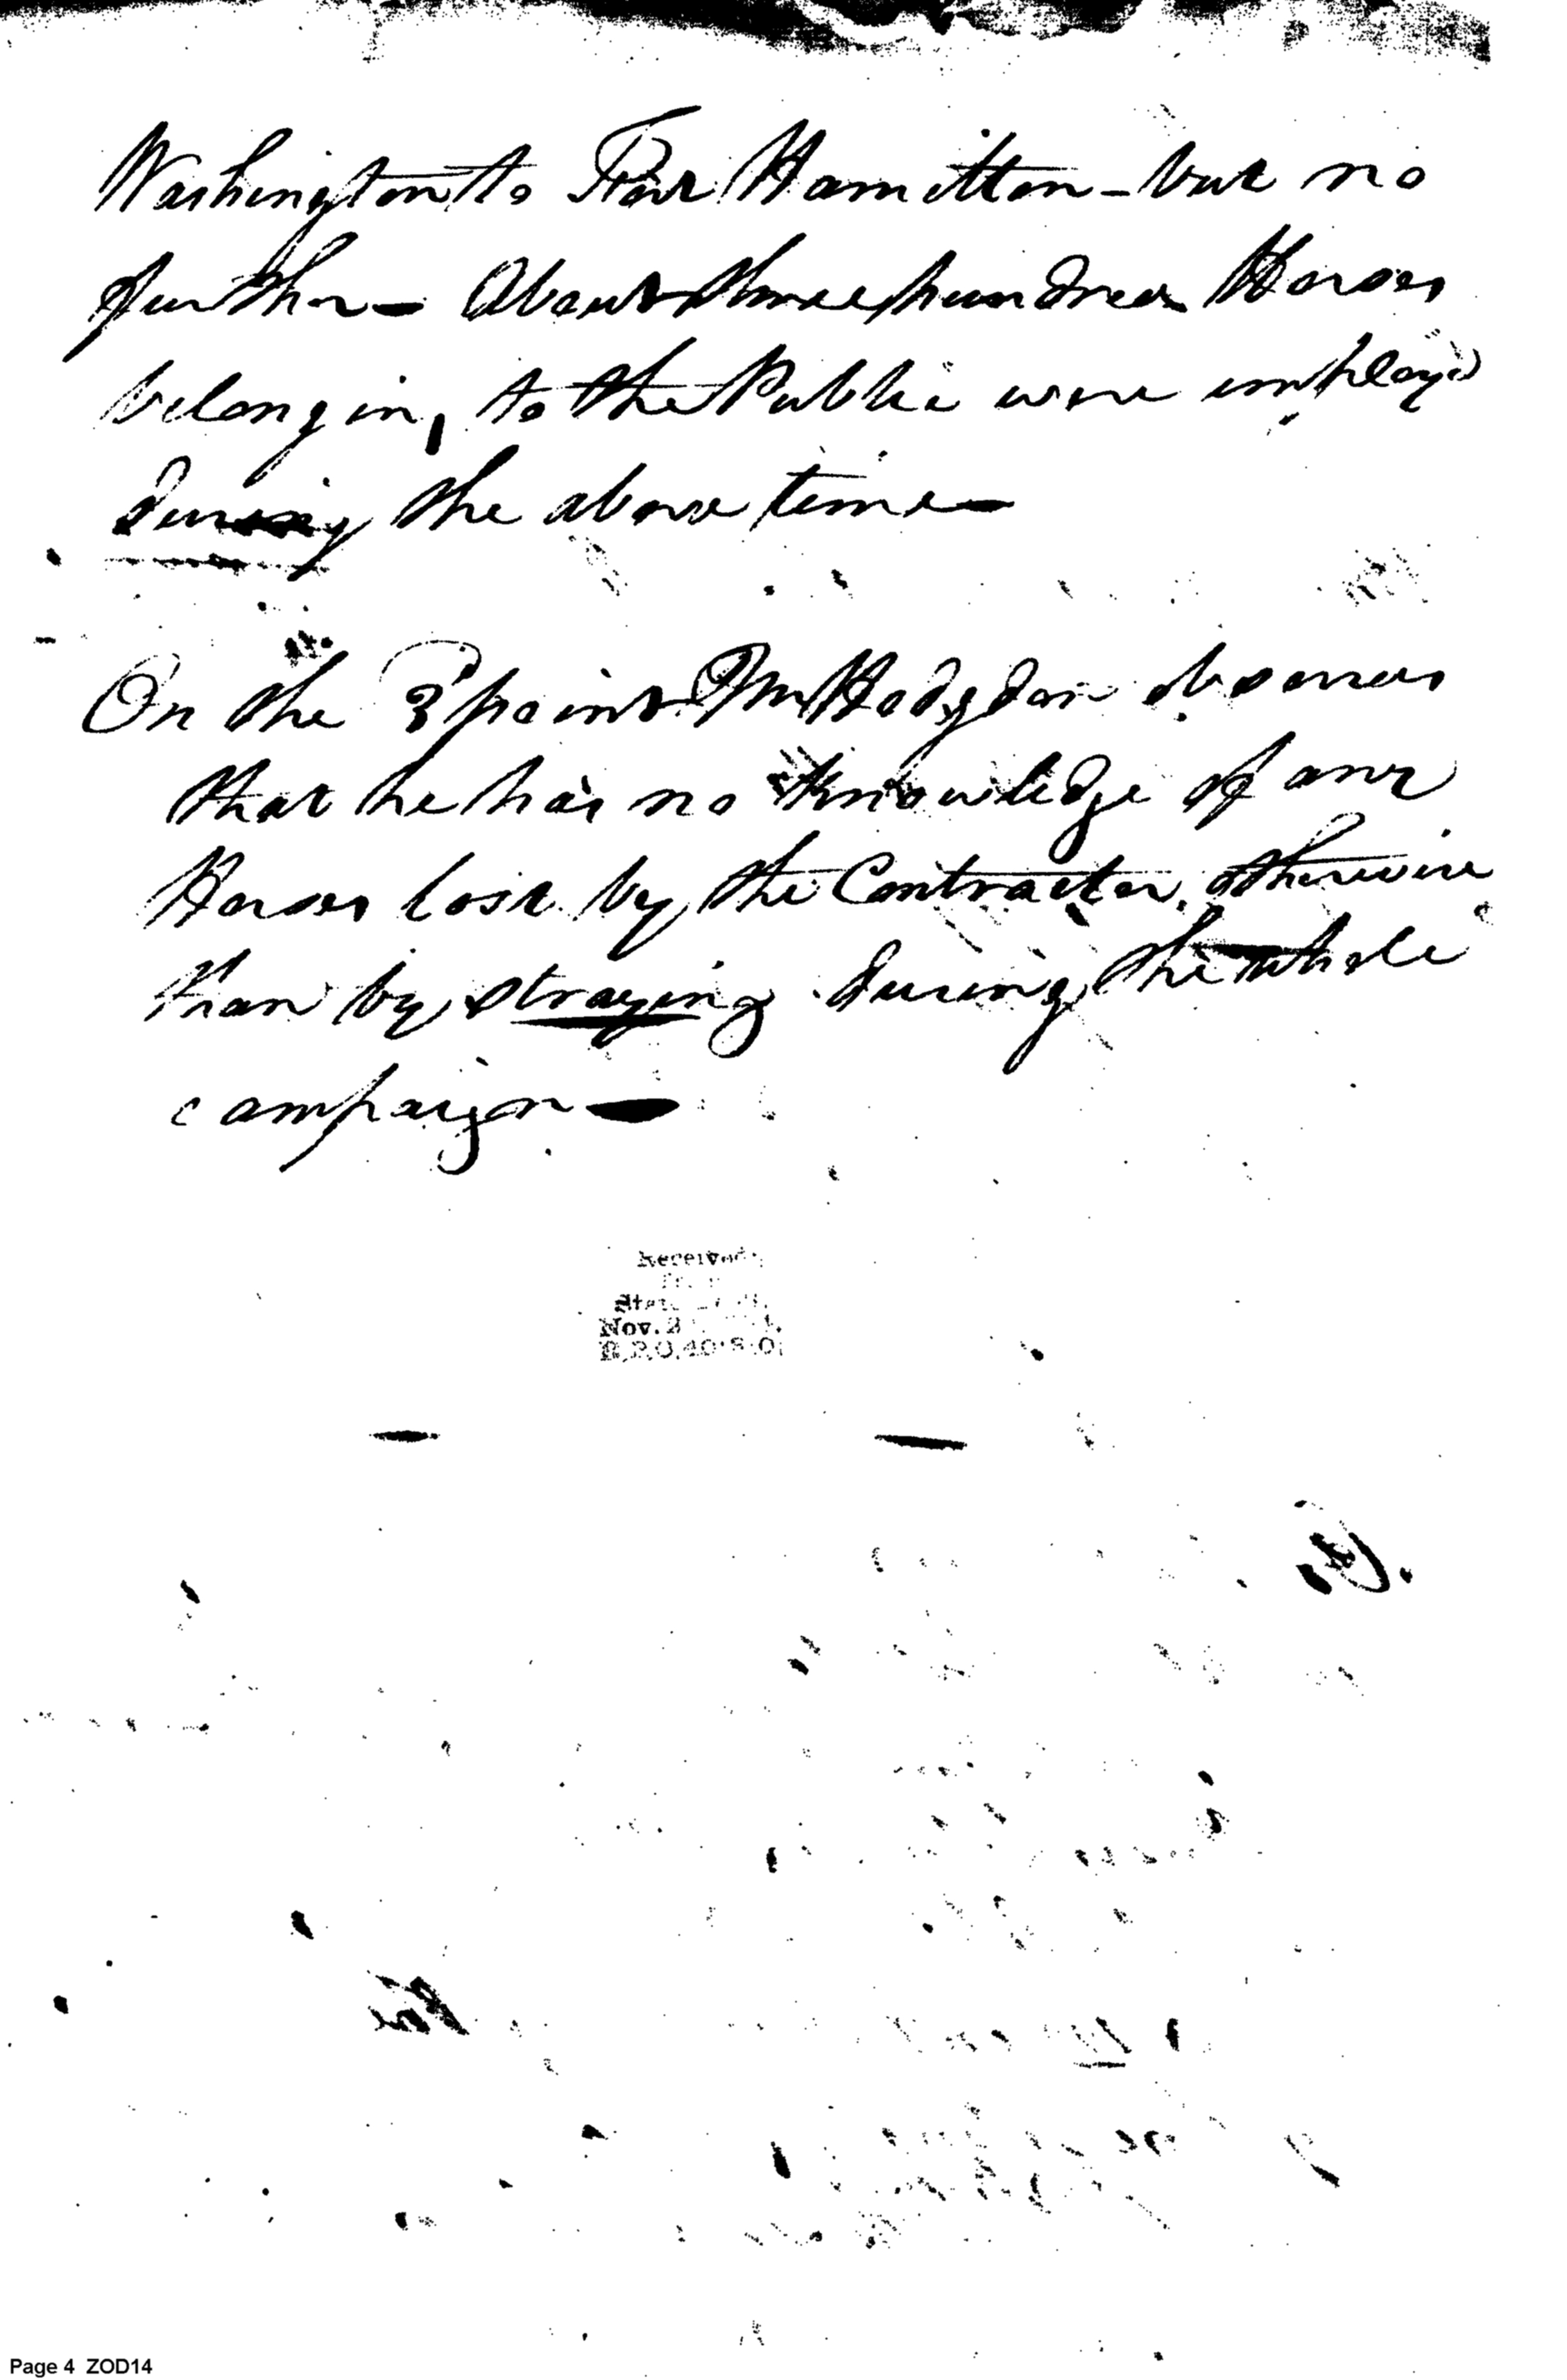 Washington to Fort Hamilton - but no
further - About three hundred Horses
belonging to the Public were employ'd
during the above time -
On the 3d point Mr Hodgdon observes
that he has no knowledge of any
Horses lost by the Contractor, otherwise
than by straying during the whole
campaign -
Received
Nov. 2
Page 4 ZOD14